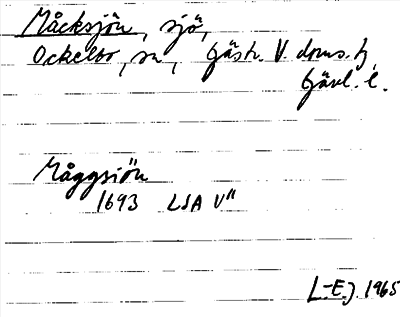 Måcksjön, sjö,
Ockelbo, sn, Gästr. V. doms. tj,
Gävl. l.
Måggsiön
1693 LSA V"
L-EJ 1965